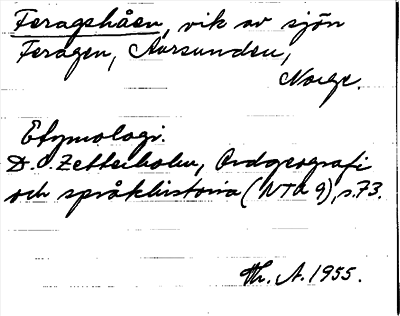 Feragshåen, vik av sjön
Feragen, Aursunden,
Norge.
Etymologi.
D.O. Zetterholm, Ordgeografi
och språkhistoria (NTU 9), s. 73.
Th. A. 1955.